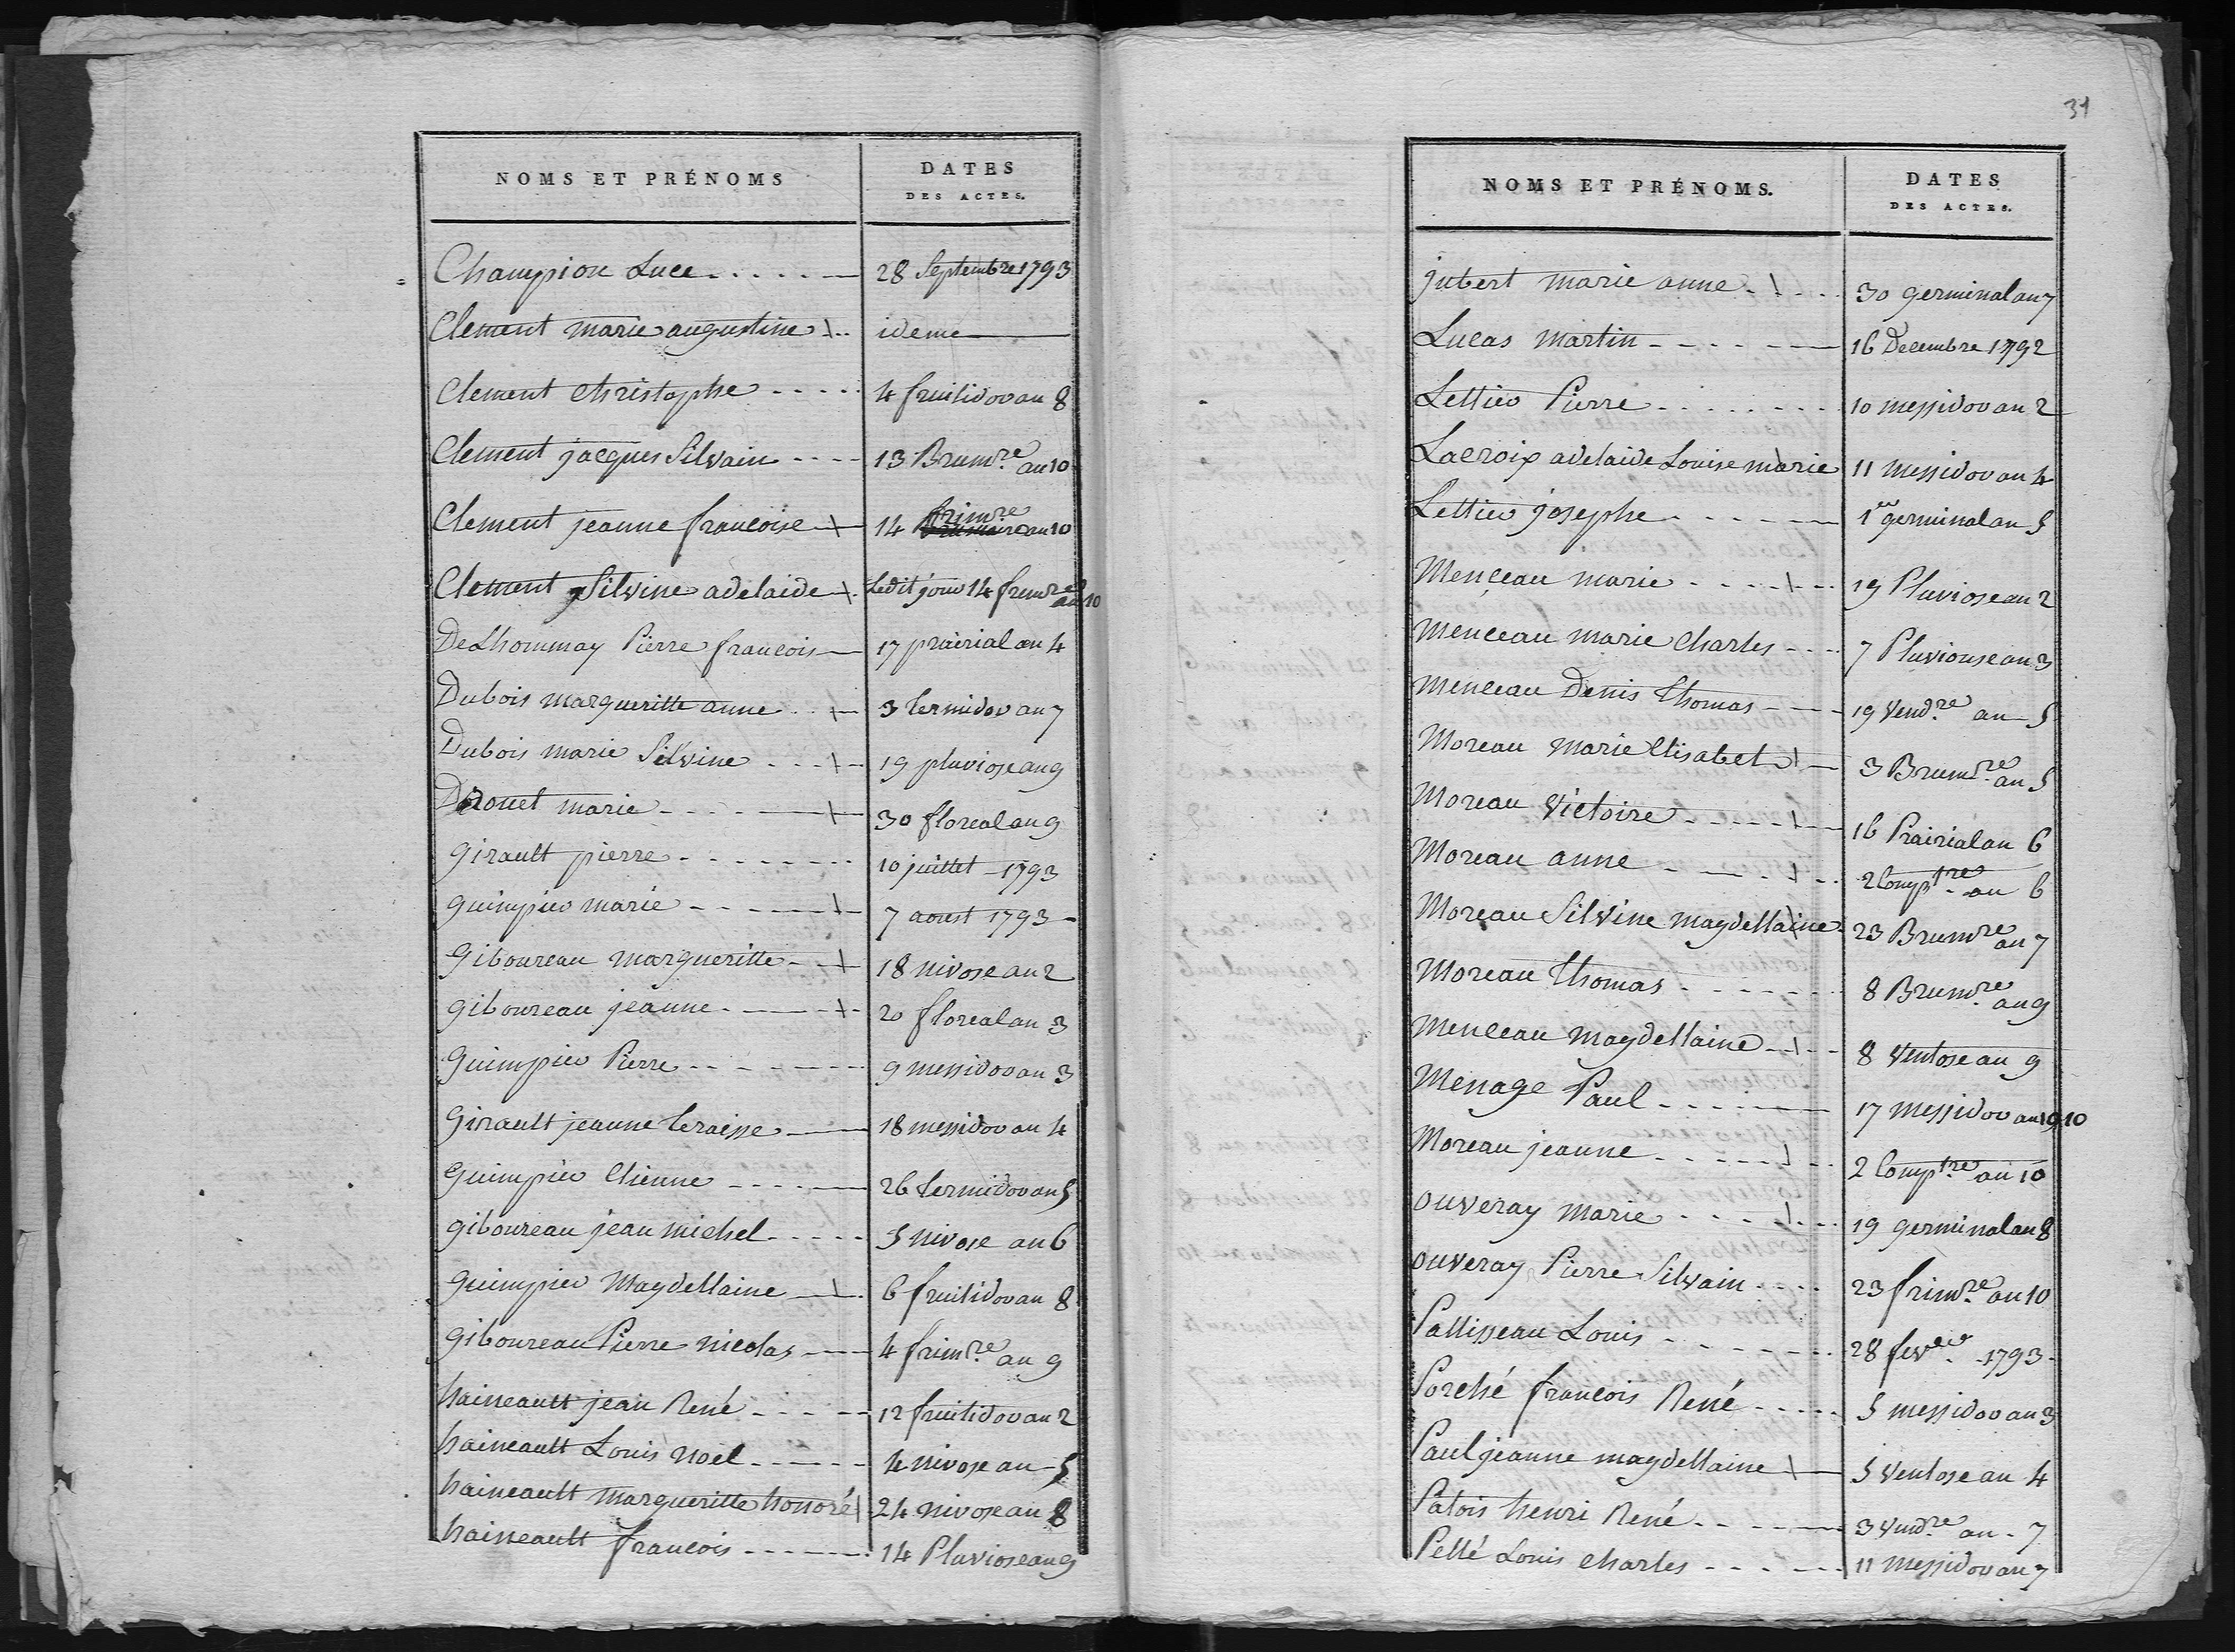 NOMS ET PRÉNOMS
DATES
DES ACTES.
Champion Luce 28 Septembre 1793
Clement marie augustine idem
Clement christophe 4 fruitidor an 8
Clement jacques Silvain 13 Brumre an 10
Clement jeanne francoise 14 frimre an 10
Clement Silvine adelaide Ledit jour 14 frimre an 10
DeLhommay Pierre francois 17 prairial an 4
Dubois margueritte anne 3 termidor an 7
Dubois marie Silvine 19 pluviose an 9
Drouet marie 30 floreal an 9
Girault pierre 10 juillet 1793
guimpier marie 7 aoust 1793
Giboureau margueritte 18 nivose an 2
giboureau jeanne 20 floreal an 3
Guimpier Pierre 9 messidor an 3
Girault jeanne teraisse 18 messidor an 4
Guimpier Etienne 26 termidor an 5
giboureau jean michel 5 nivose an 6
guimpier Magdellaine 6 fruitidor an 8
giboureau Pierre nicolas 4 frimre an 9
haineault jean René 12 fruitidor an 2
haineault Louis noel 4 nivose an 5
haineault margueritte honoré 24 nivose an 8
haineault francois 14 Pluviose an 9
31
NOMS ET PRÉNOMS.
DATES
DES ACTES.
jubert marie anne 30 germinal an 7
Lucas martin 16 Decembre 1792
Lettier Pierre 10 messidor an 2
Lacroix adelaide Louise marie 11 messidor an 4
Lettier josephe 1er germinal an 5
Menceau marie 19 Pluviose an 2
menceau marie charles 7 Pluviouse an 3
menceau Denis thomas 19 Vendre an 5
Moreau marie Elisabet 3 Brumre an 5
Moreau Victoire 16 Prairial an 6
Moreau anne 2 Comptre an 6
Moreau Silvine magdellaine 23 Brumre an 7
Moreau thomas 8 Brumre an 9
Menceau magdellaine 8 Ventose an 9
Menage Paul 17 messidor an 10
Moreau jeanne 2 Comptre an 10
ouveray marie 19 germinal an 8
ouveray Pierre Silvain 23 frimre an 10
Pallisseau Louis 28 fevrer 1793
Porché francois René 5 messidor an 3
Paul jeanne magdellaine 5 Ventose an 4
Patois henri René 3 Vendre an 7
Pellé Louis charles 11 messidor an 7